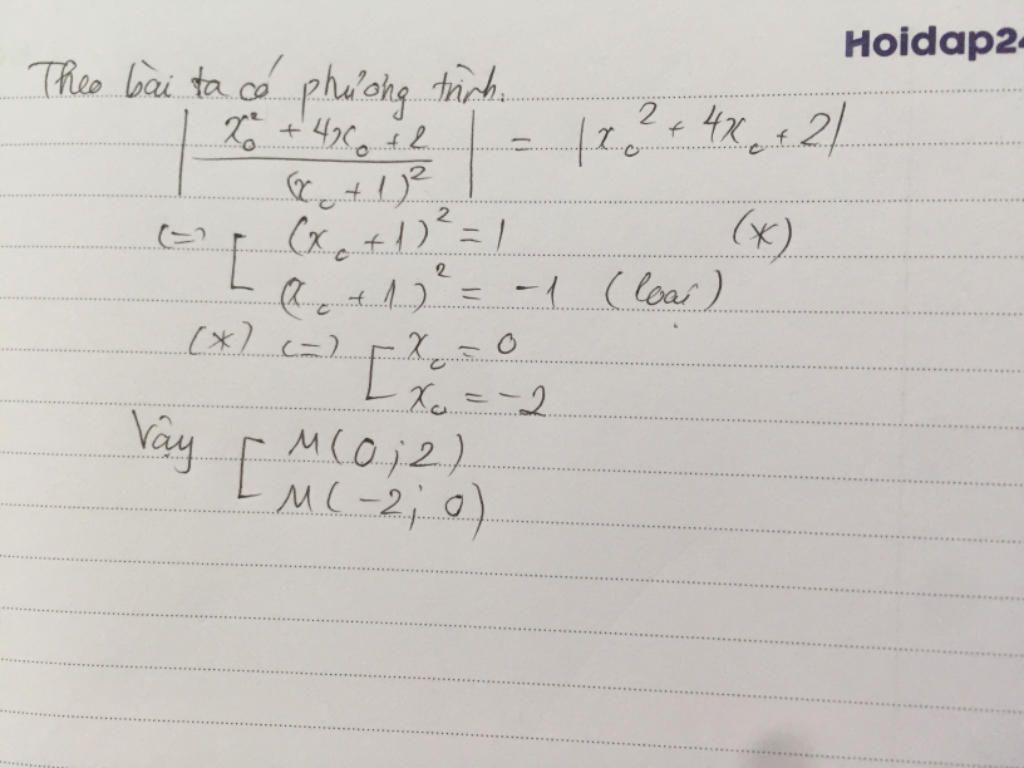 Hoidap24
Theo bài ta có phương trình.
| (x₀² + 4x₀ + 2) / (x₀ + 1)² | = |x₀² + 4x₀ + 2|
(=) [ (x₀ + 1)² = 1 (*)
(x₀ + 1)² = -1 (loại)
(*) (=) [ x₀ = 0
x₀ = -2
Vậy [ M(0; 2)
M(-2; 0)